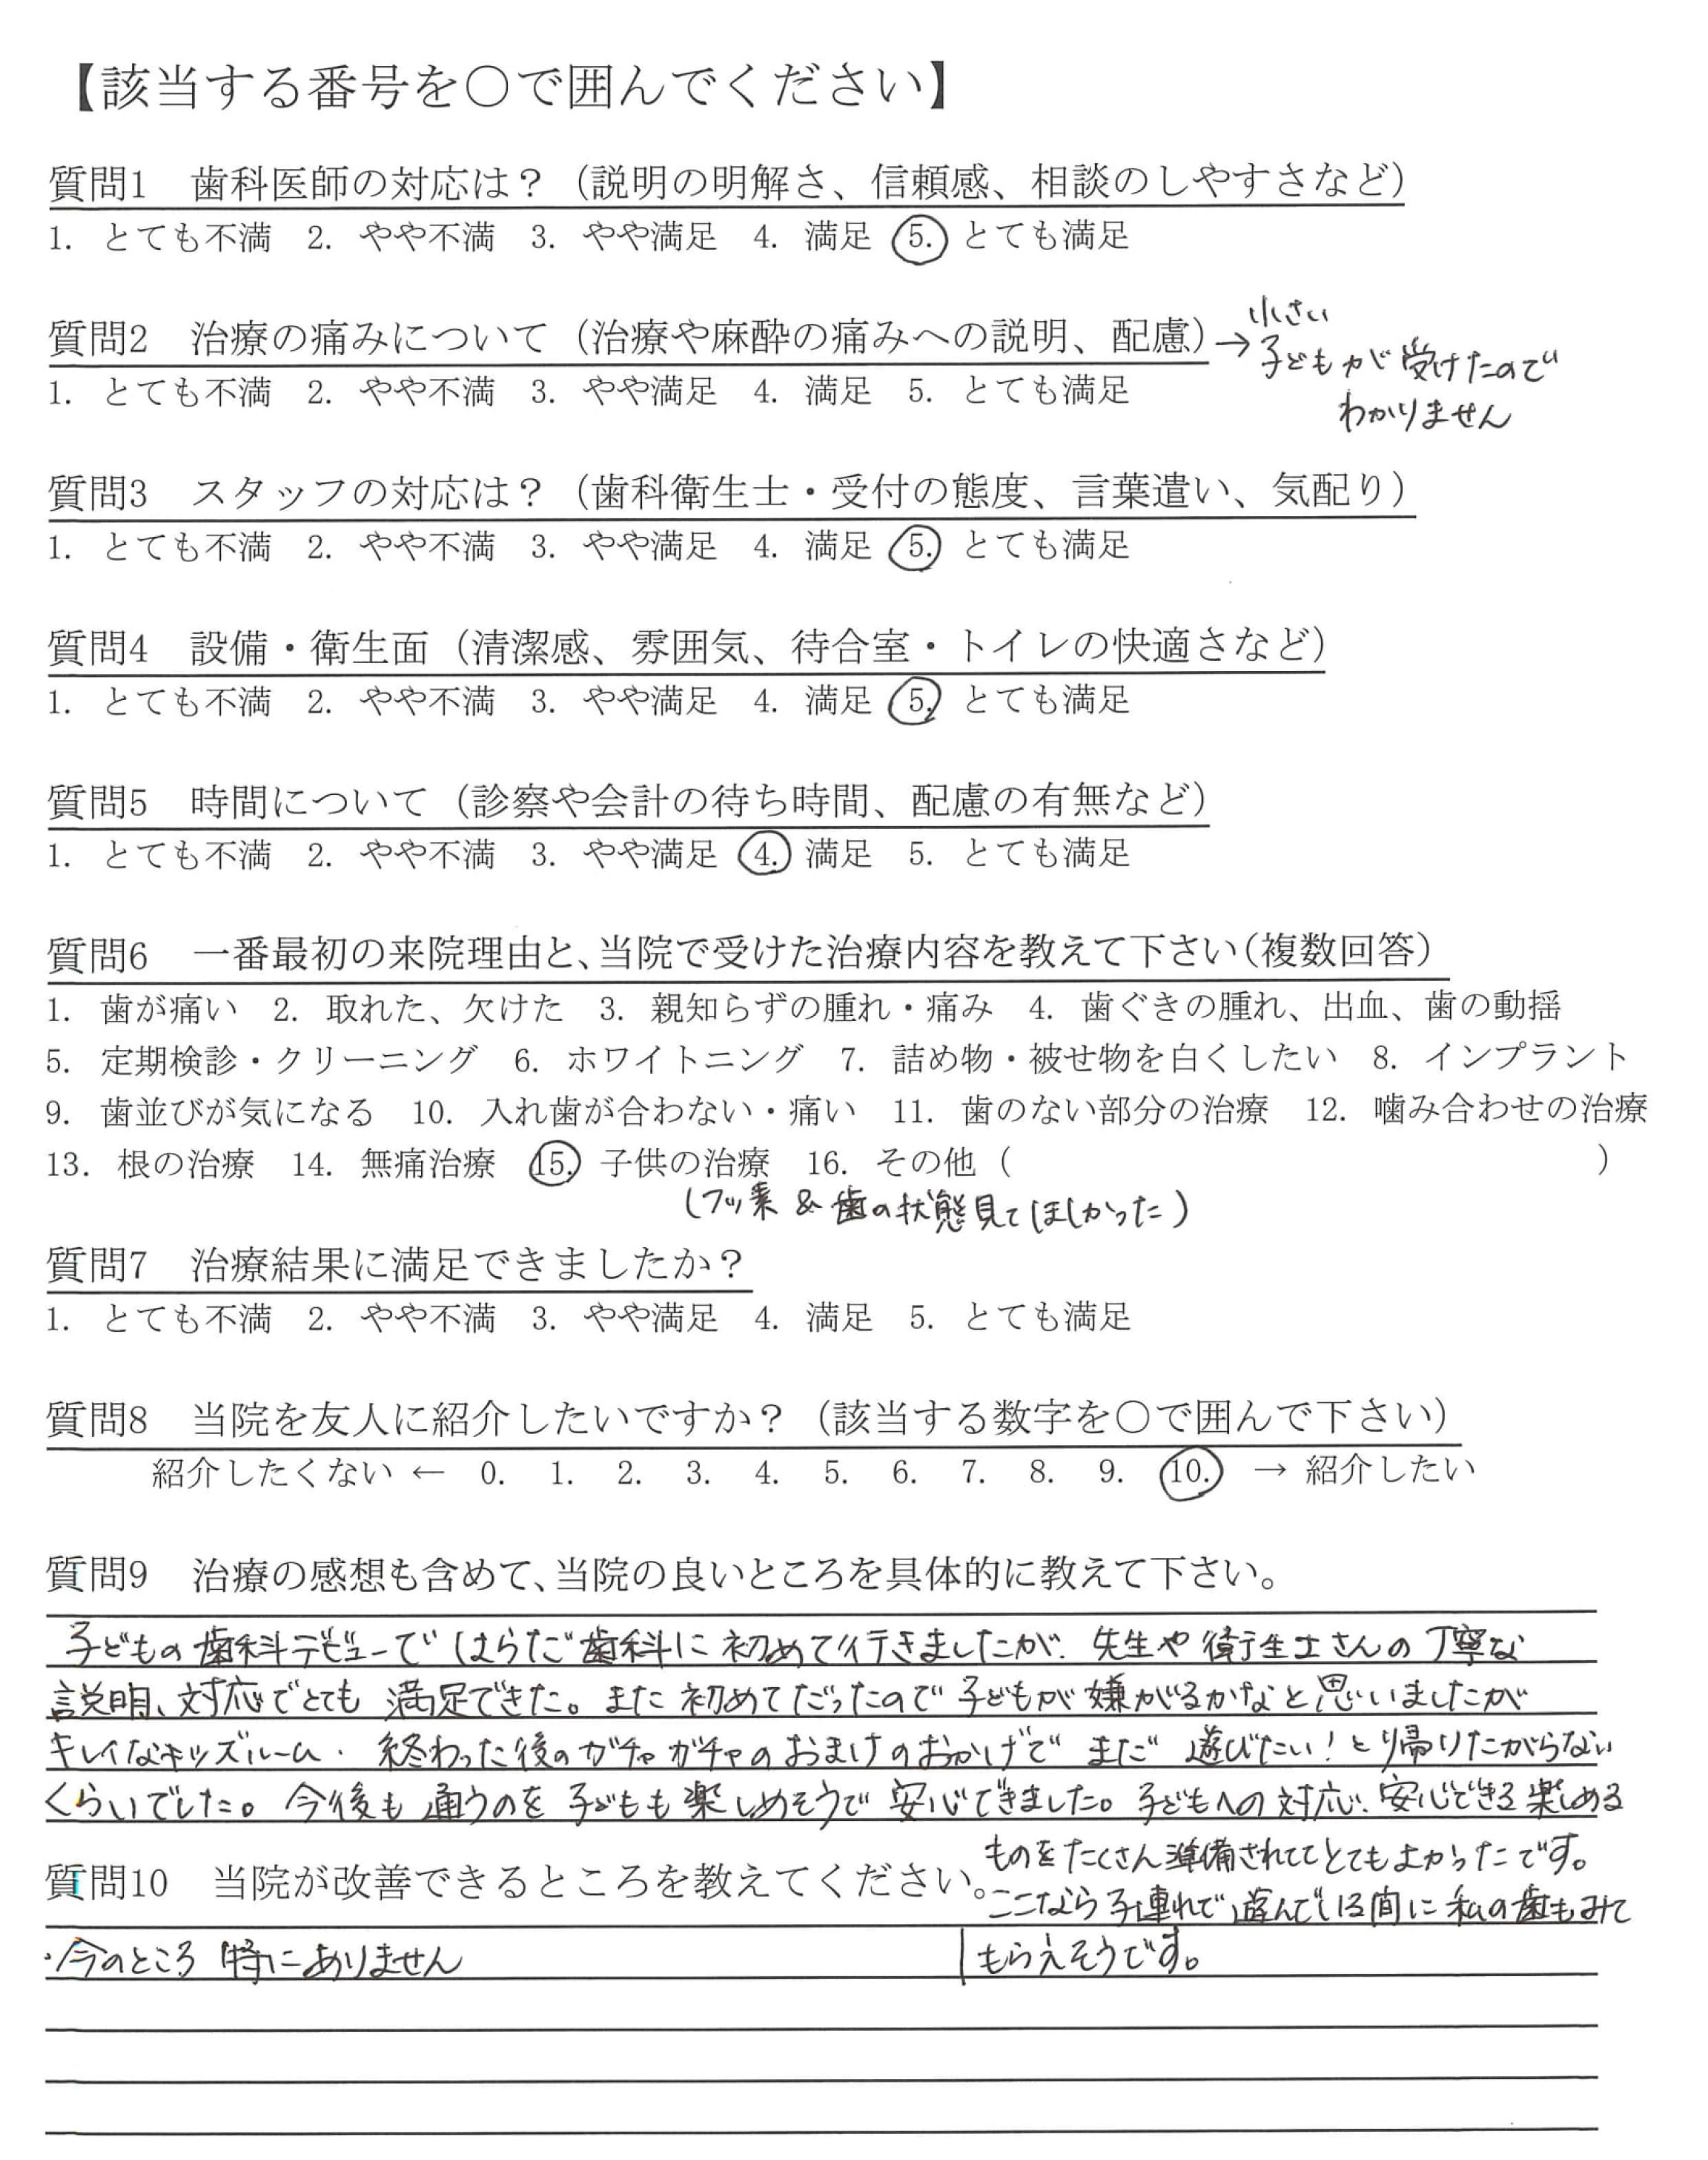 【該当する番号を○で囲んでください】
質問1　歯科医師の対応は？（説明の明解さ、信頼感、相談のしやすさなど）
1. とても不満　2. やや不満　3. やや満足　4. 満足　5. とても満足
質問2　治療の痛みについて（治療や麻酔の痛みへの説明、配慮）→小さい
子どもが受けたので
1. とても不満　2. やや不満　3. やや満足　4. 満足　5. とても満足
わかりません
質問3　スタッフの対応は？（歯科衛生士・受付の態度、言葉遣い、気配り）
1. とても不満　2. やや不満　3. やや満足　4. 満足　5. とても満足
質問4　設備・衛生面（清潔感、雰囲気、待合室・トイレの快適さなど）
1. とても不満　2. やや不満　3. やや満足　4. 満足　5. とても満足
質問5　時間について（診察や会計の待ち時間、配慮の有無など）
1. とても不満　2. やや不満　3. やや満足　4. 満足　5. とても満足
質問6　一番最初の来院理由と、当院で受けた治療内容を教えて下さい（複数回答）
1. 歯が痛い　2. 取れた、欠けた　3. 親知らずの腫れ・痛み　4. 歯ぐきの腫れ、出血、歯の動揺
5. 定期検診・クリーニング　6. ホワイトニング　7. 詰め物・被せ物を白くしたい　8. インプラント
9. 歯並びが気になる　10. 入れ歯が合わない・痛い　11. 歯のない部分の治療　12. 噛み合わせの治療
13. 根の治療　14. 無痛治療　15. 子供の治療　16. その他（　　　）
（フッ素 & 歯の状態見てほしかった）
質問7　治療結果に満足できましたか？
1. とても不満　2. やや不満　3. やや満足　4. 満足　5. とても満足
質問8　当院を友人に紹介したいですか？（該当する数字を○で囲んで下さい）
紹介したくない ← 0. 1. 2. 3. 4. 5. 6. 7. 8. 9. 10. → 紹介したい
質問9　治療の感想も含めて、当院の良いところを具体的に教えて下さい。
子どもの歯科デビューではらだ歯科に初めて行きましたが、先生や衛生士さんの丁寧な
説明、対応でとても満足できた。また初めてだったので子どもが嫌がるかなと思いましたが
キレイなキッズルーム、終わった後のガチャガチャのおまけのおかげでまだ遊びたい！と帰りたがらない
くらいでした。今後も通うのを子どもも楽しめそうで安心できました。子どもへの対応、安心できる楽しめる
ものをたくさん準備されててとてもよかったです。
質問10　当院が改善できるところを教えてください。
ここなら子連れで遊んでいる間に私の歯もみて
・今のところ特にありません
もらえそうです。